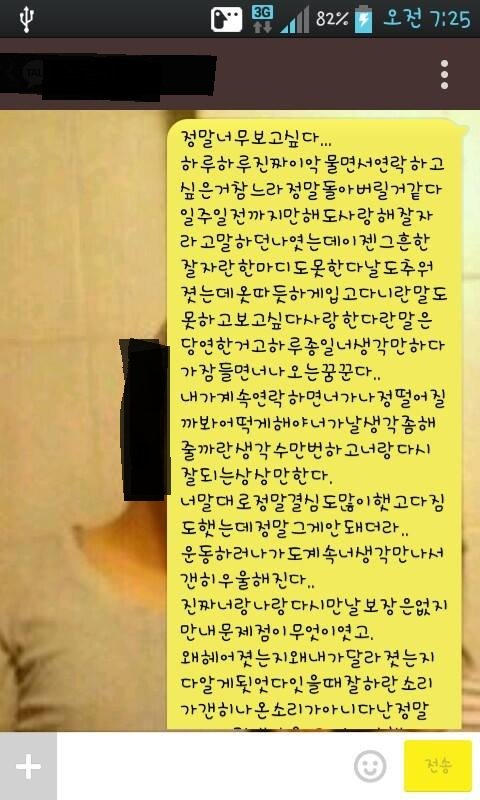 3G 82% 오전 7:25
정말너무보고싶다...
하루하루진짜이악물면서연락하고
싶은거참느라정말돌아버릴거같다
일주일전까지만해도사랑해잘자
라고말하던나였는데이젠그흔한
잘자란한마디도못한다날도추워
졌는데옷따듯하게입고다니란말도
못하고보고싶다사랑한다란말은
당연한거고하루종일너생각만하다
가잠들면너나오는꿈꾼다..
내가계속연락하면너가나정떨어질
까봐어떡게해야너가날생각좀해
줄까란생각수만번하고너랑다시
잘되는상상만한다.
너말대로정말결심도많이했고다짐
도했는데정말그게안돼더라..
운동하러나가도계속너생각만나서
갠히우울해진다..
진짜너랑나랑다시만날보장은없지
만내문제점이무엇이였고.
왜헤어졌는지왜내가달라졌는지
다알게됫었다잇을때잘하란소리
가갠히나온소리가아니다난정말
전송